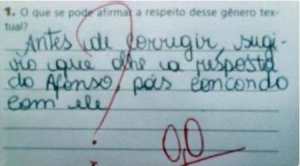 1. O que se pode afirmar a respeito desse gênero tex-
tual?
Antes de corrigir, sugi-
ro que olhe a resposta
do Afonso, pois concordo
com ele
?
0,0